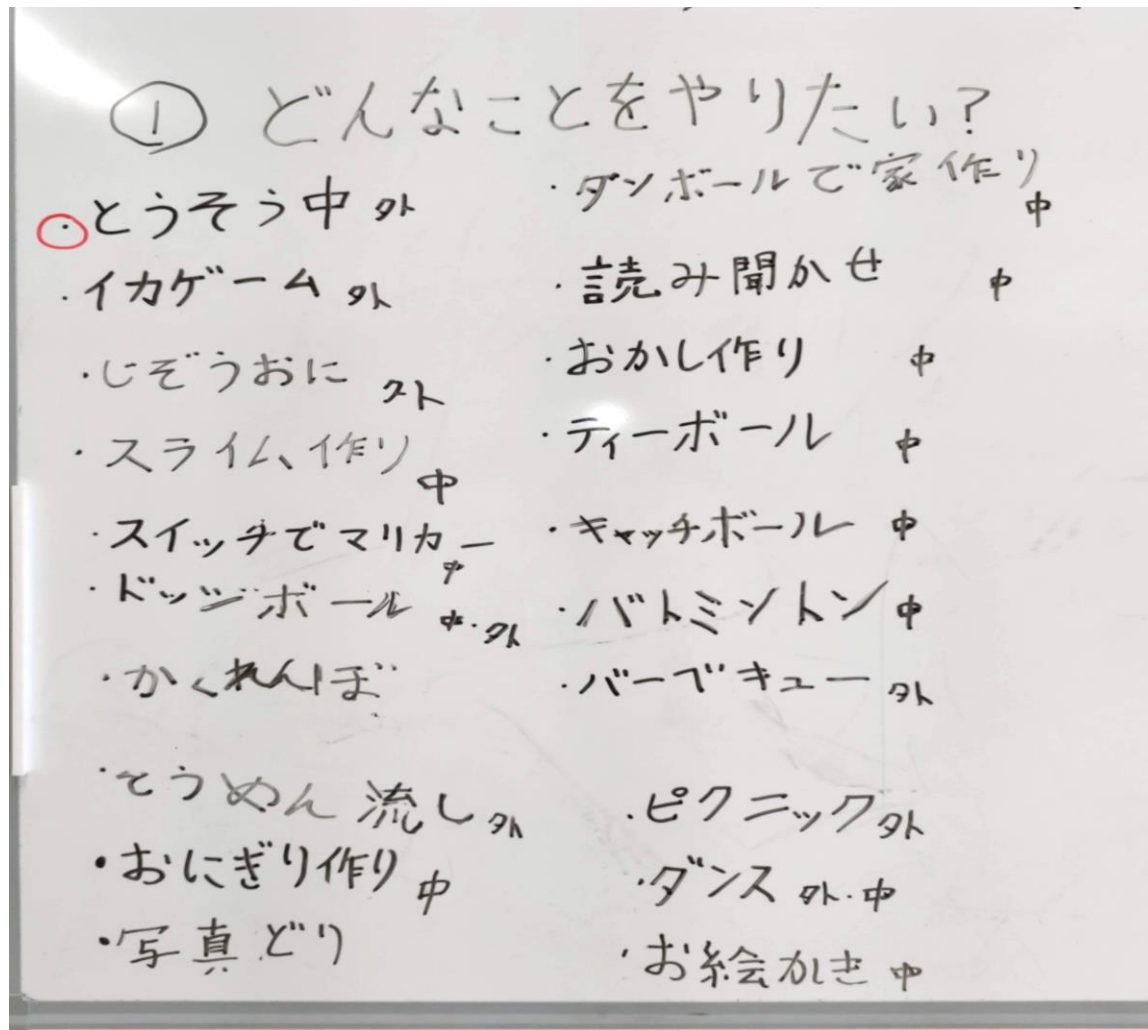 ① どんなことをやりたい?
・とうそう中 外
・イカゲーム 外
・じぞうおに 外
・スライム作り 中
・スイッチでマリカー 中
・ドッジボール 中・外
・かくれんぼ
・そうめん流し 外
・おにぎり作り 中
・写真どり
・ダンボールで家作り 中
・読み聞かせ 中
・おかし作り 中
・ティーボール 中
・キャッチボール 中
・バトミントン 中
・バーベキュー 外
・ピクニック 外
・ダンス 外・中
・お絵かき 中